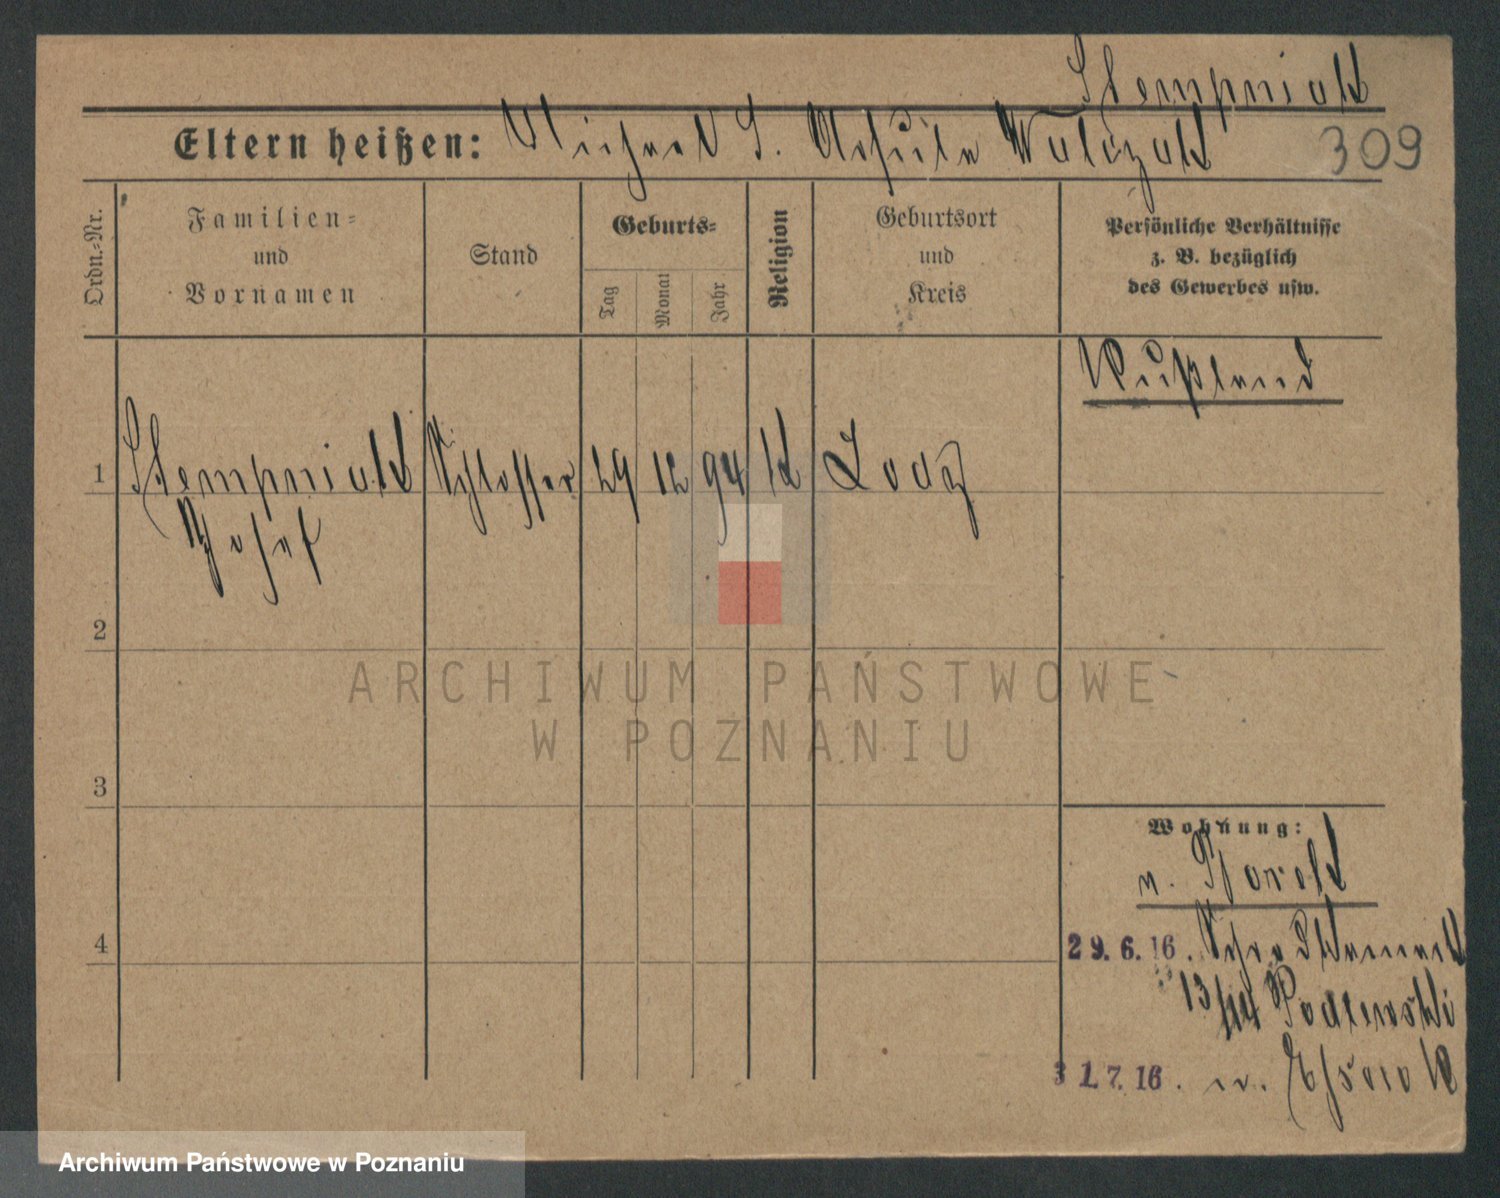 Stempniak
Eltern heißen: Michael S. Walczak
309
Ordn.-Nr.
Familien-
und
Vornamen
Stand
Geburts-
Tag
Monat
Jahr
Religion
Geburtsort
und
Kreis
Persönliche Verhältnisse
z. B. bezüglich
des Gewerbes usw.
Rußland
1 Stempniak Schlosser 29 12 94 k Lodz
Josef
2
3
4
Wohnung:
n. Borek
29.6.16.
13/14 Podlewski
31.7.16. n.
ARCHIWUM PAŃSTWOWE
W POZNANIU
Archiwum Państwowe w Poznaniu